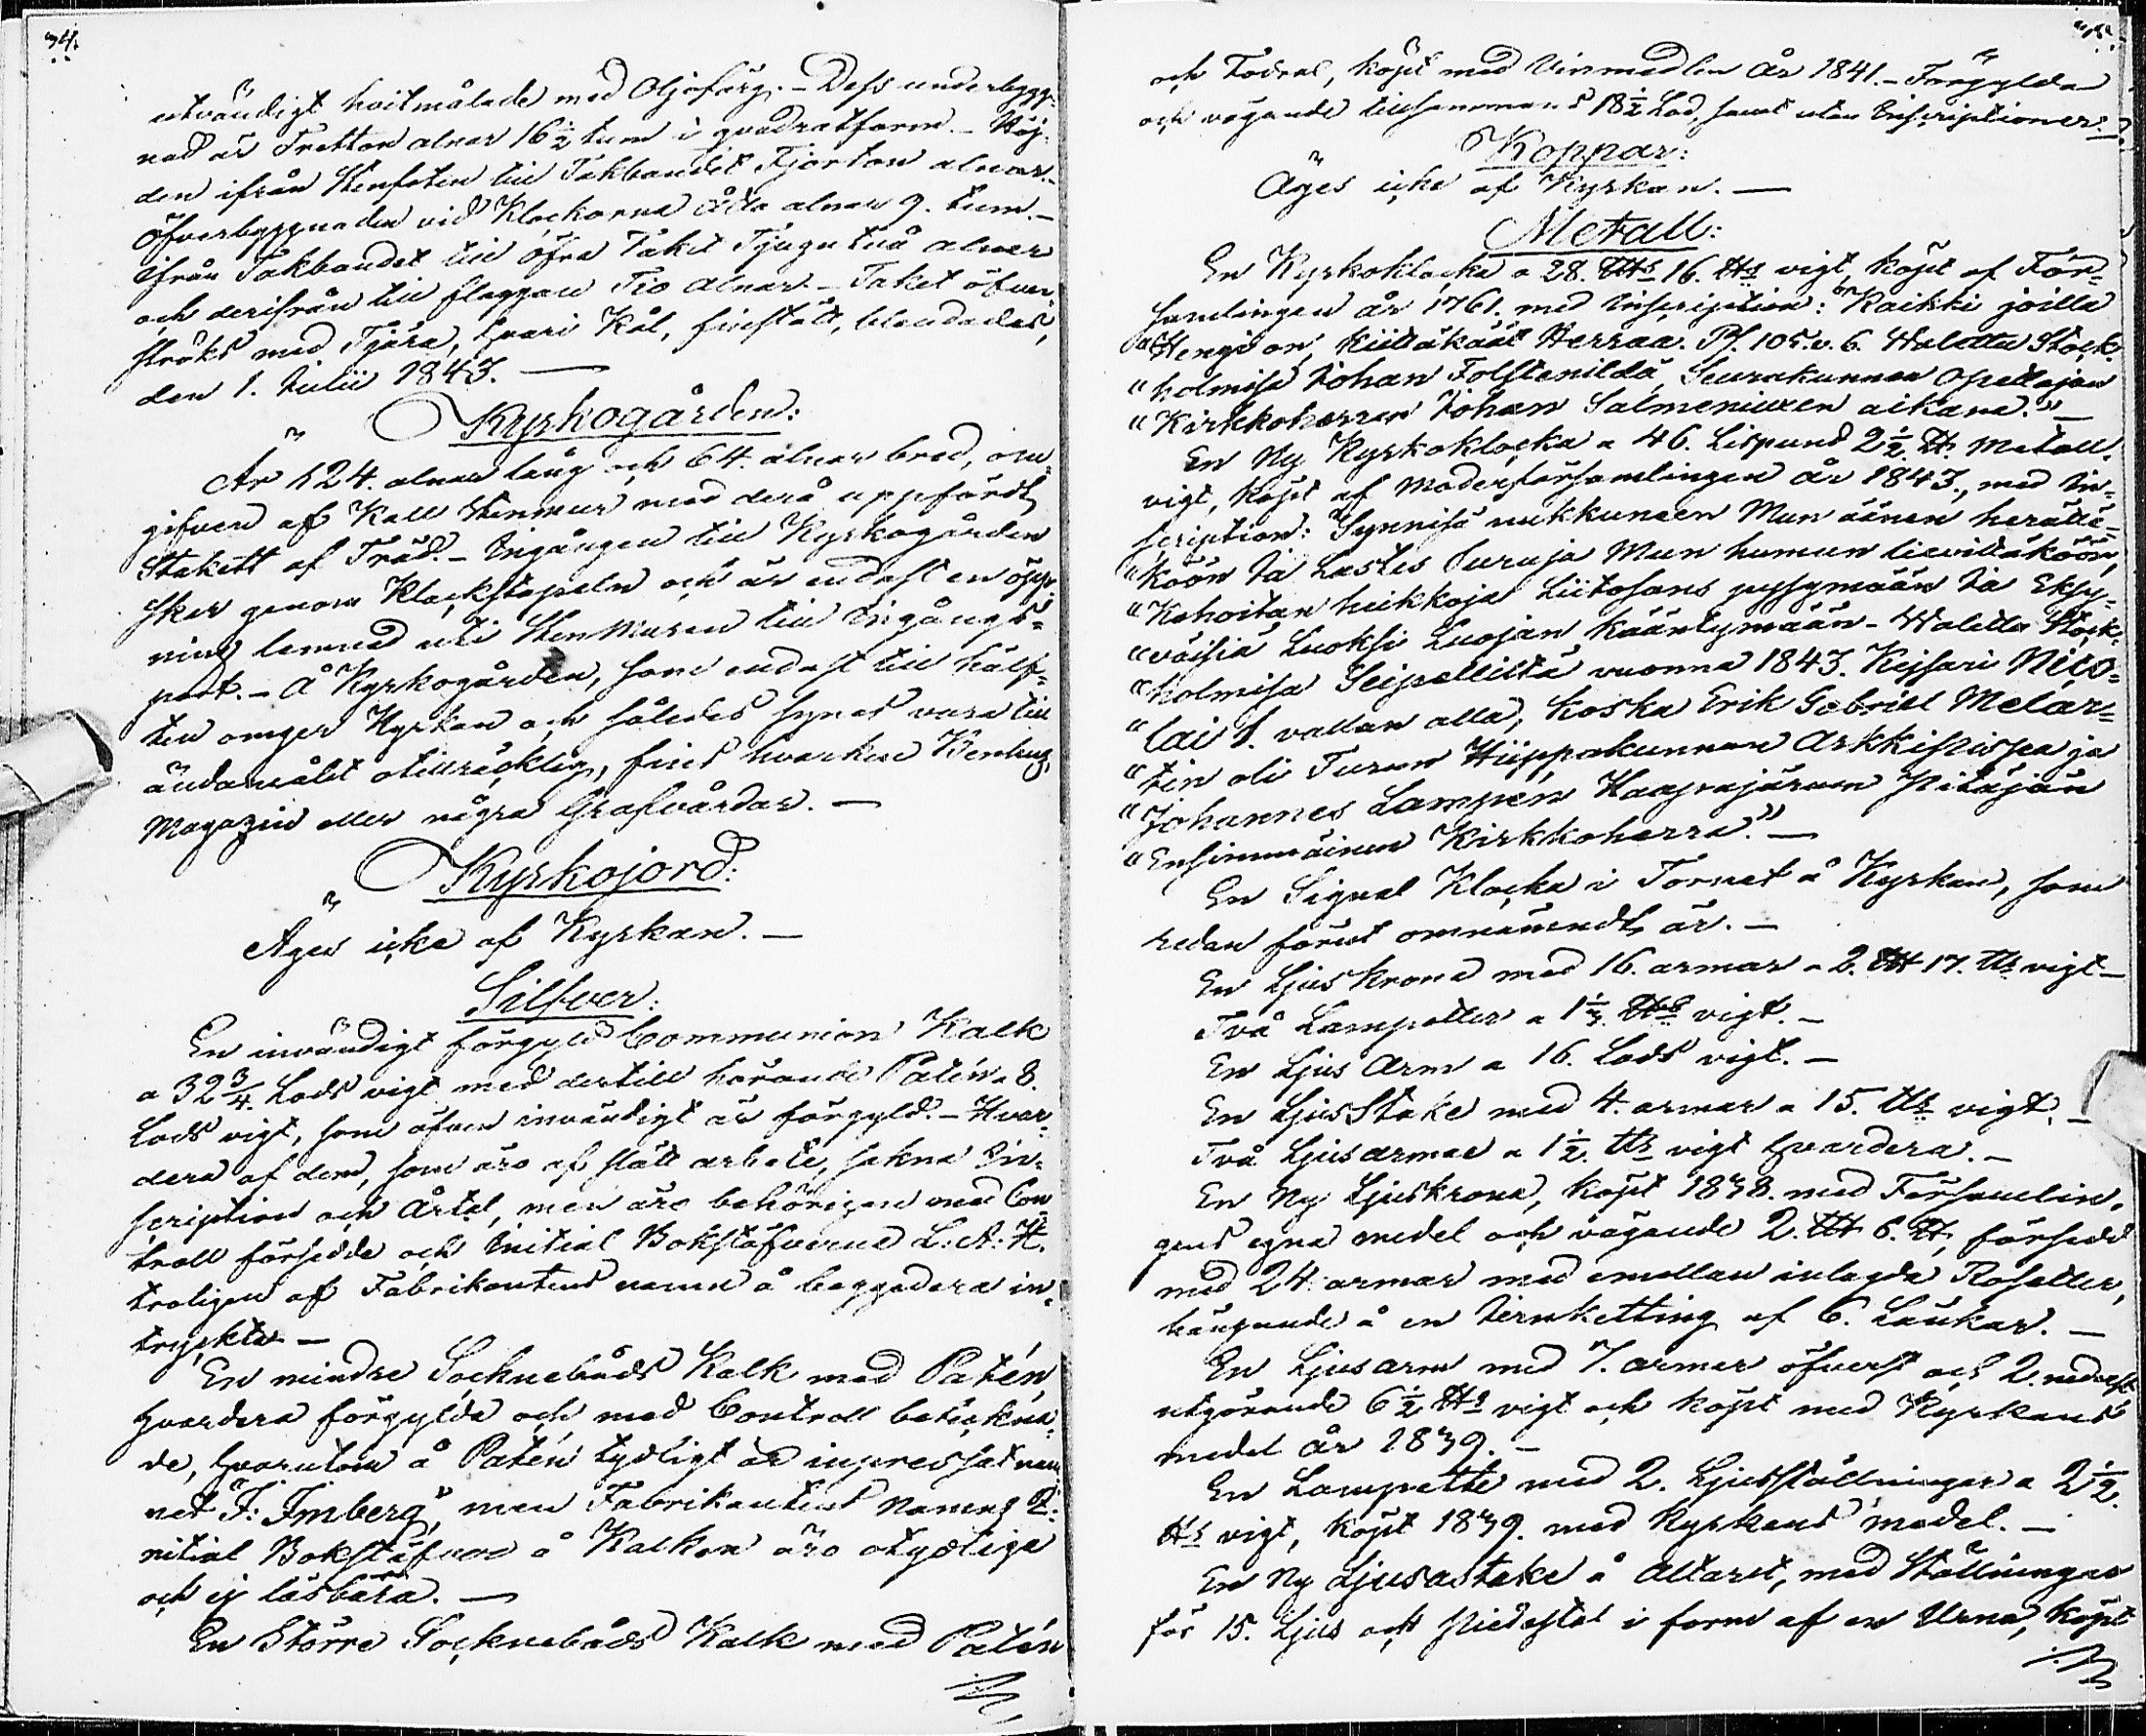 34.
utvändigt hvitmålade med Oljefärg. - Dess underbygg-
nad är Tretton alnar 16½ tum i quadratform. - Höj-
den ifrån Stenfoten till Takbandet Fjorton alnar. -
Öfverbyggnaden vid Klockorna åtta alnar 9. tum. -
ifrån Takbandet till öfra Taket Tjugutvå alnar
och derifrån till flaggan Tio alnar. - Taket öfver-
ströks med Tjära, hvari Kål, finstött, blandades,
den 1. Julii 1843. —
Kyrkogården:
Är 124. alnar lång och 64. alnar bred, om-
gifven af Kall Stenmur med derå uppfördt
Stakett af Träd. - Ingången till Kyrkogården
sker genom Klockstapeln och är endast en öpp-
ning lemnad uti Stenmuren till Ingångs-
port. - Å Kyrkogården, som endast till hälf-
ten omger Kyrkan och således synes vara till
ändamålet otillräcklig, fins hvarken Benhus,
Magazin eller några Grafvårdar. —
Kyrkojord:
Äges icke af Kyrkan. —
Silfver:
En invändigt förgyld Communion Kalk
a 32¾. Lods vigt med dertill hörande Patén a 8.
Lods vigt, som äfven invändigt är förgyld. - Hvar-
dera af dem, som äro af slätt arbete, sakna In-
scription och Årtal, men äro behörigen med Con-
troll försedde och Initial Bokstäfverne L: A: H.
troligen af Fabrikantens namn å beggedera in-
tryckta —
En mindre Socknebuds Kalk med Patén,
hvardera förgylda och med Controll beteckna-
de, hvarutom å Patén tydligt är impressat nam-
net "F: Imberg", men Fabrikantens Namns I-
nitial Bokstäfver å Kalken äro otydliga
och ej läsbara. —
En Större Sockenebuds Kalk med Patén
och Fodral, köpt med Vinmedlen År 1841. - Förgylda
och vägande tillsammans 18½ Lod, samt utan Inscriptioner.
Koppar:
Äges icke af Kyrkan. —
Metall:
En Kyrkoklocka a 28. L℔s 16. ℔s vigt, köpt af För-
samlingen år 1761. med Inscription: "Kaikki joilla
"Hengi on, Kiittäkäät Herraa. Ps. 105. v. 6. Waletta Stock-
"holmisa Johan Folstenildä, Seurakunnan opettajan
"Kirkkoherran Johan Salmeniuxen aikana." —
En Ny Kyrkoklocka a 46. Lispund 2½. ℔. Metall.
vigt, köpt af Moderförsamlingen år 1843., med In-
scription: Synnisä nukkuneen Mun äänen herättä-
"köön Ja Lastes Suruja Mun humun lievittäköön,
"Kehoitan heikkoja Liitosans pysymään Ja Eksy-
"väisiä Luoksi Luojan kääntymään - Waletta Stock-
"holmisa Seipelliltä vuonna 1843. Keisari Nico-
"lai I. vallan alla, koska Erik Gabriel Melar-
"tin oli Turun Hiippakunnan Arkkipispa ja
"Johannes Lampén Haapajärven Pitäjän
"Ensimmäinen Kirkkoherra." —
En Signal Klocka i Tornet å Kyrkan, som
redan förut omnämndt är. —
En Ljus Krona med 16. armar a 2. L℔ 17. ℔s vigt —
Två Lampetter a 1½. ℔s vigt. —
En Ljus Arm a 16. Lods vigt. —
En LjusStake med 4. armar a 15. ℔s vigt. —
Två Ljusarmar a 1½. ℔s vigt hvardera. —
En Ny Ljuskrona, köpt 1838. med Församlin-
gens egna medel och vägande 2. L℔ 6. ℔, försedd
med 24. armar med emellan inlagda Rosetter,
hängande å en Jernketting af 6. Länkar. —
En Ljusarm med 7. armar öfverst och 2. nederst
utgörande 6½ ℔s vigt och köpt med Kyrkans
medel år 1839. —
En Lampette med 2. Ljusställningar a 2½.
℔s vigt, köpt 1839. med Kyrkans medel. —
En Ny Ljusastake å Altaret, med Ställningar
för 15. Ljus och Piedestal i form af en Urna, köpt